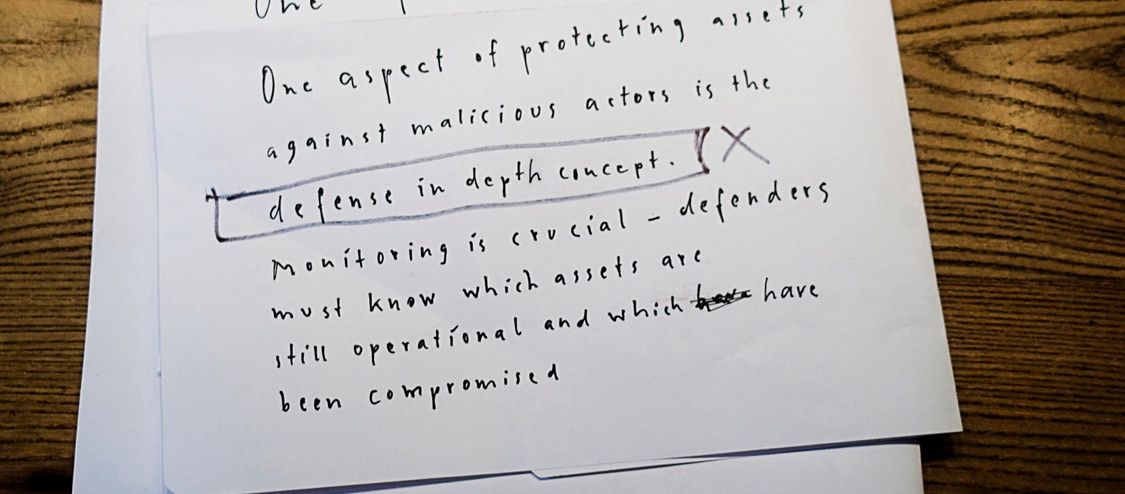 One
One aspect of protecting assets
against malicious actors is the
defense in depth concept. X
Monitoring is crucial - defenders
must know which assets are
still operational and which have
been compromised